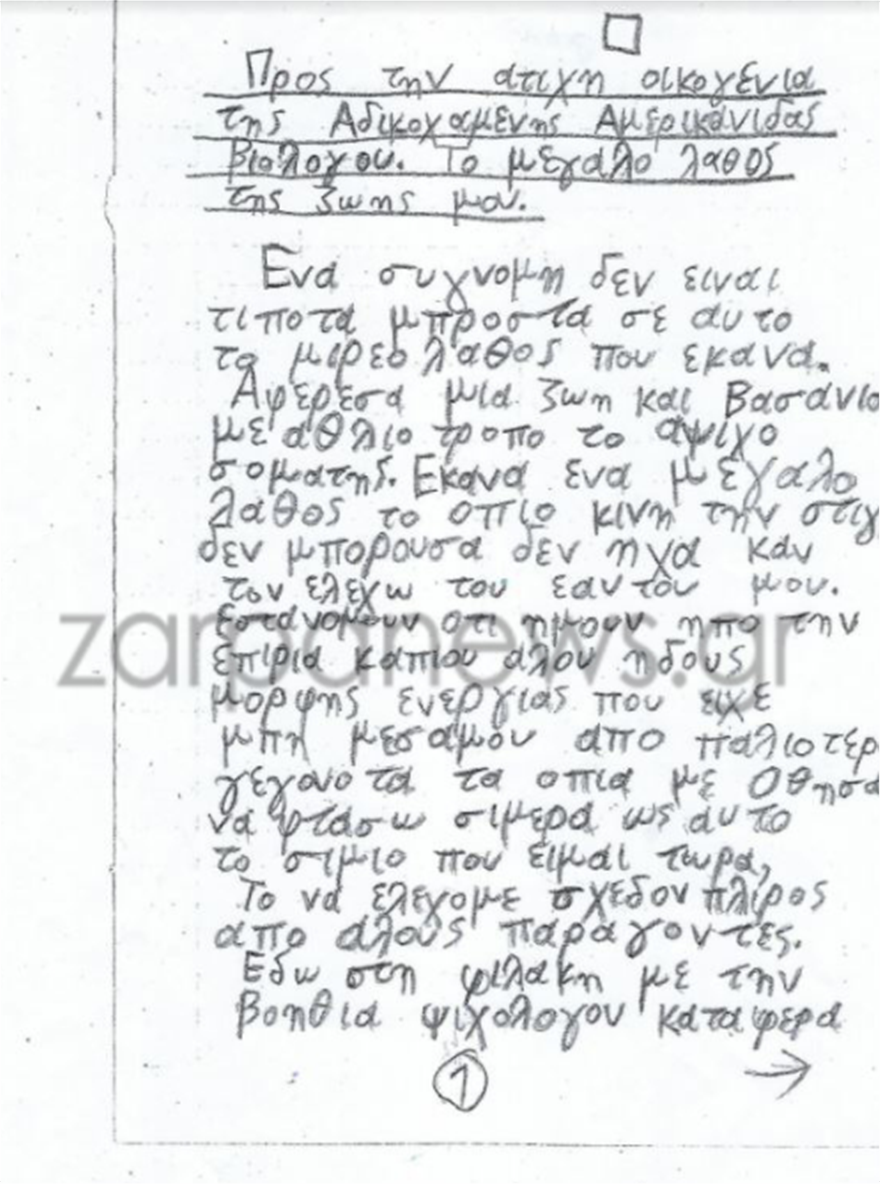 Προς την ατιχη οικογενια
της Αδικοχαμενης Αμερικανιδας
βιολογου. Το μεγαλο λαθος
της ζωης μου.
Ενα συγνομη δεν ειναι
τιποτα μπροστα σε αυτο
το μιρεο λαθος που εκανα.
Αφερεσα μια ζωη και Βασανισ
με αθλιο τροπο το αψιχο
σοματης. Εκανα ενα μεγαλο
λαθος το οπιο κινη την στιγ
δεν μπορουσα δεν ηχα καν
τον ελεχω του εαυτου μου.
Εστανομουν οτι ημουν ηπο την
επιρια καπιου αλου ηδους
μορφης ενεργιας που ειχε
μπη μεσαμου απο παλιοτερ
γεγονοτα τα οπια με Οθησα
να φτασω σιμερα ως αυτο
το σιμιο που ειμαι τωρα,
Το να ελεγχομε σχεδον πλιρος
απο αλους παραγοντες.
Εδω στη φιλακη με την
βοηθια ψιχολογου καταφερα
1 →
zarpanews.gr